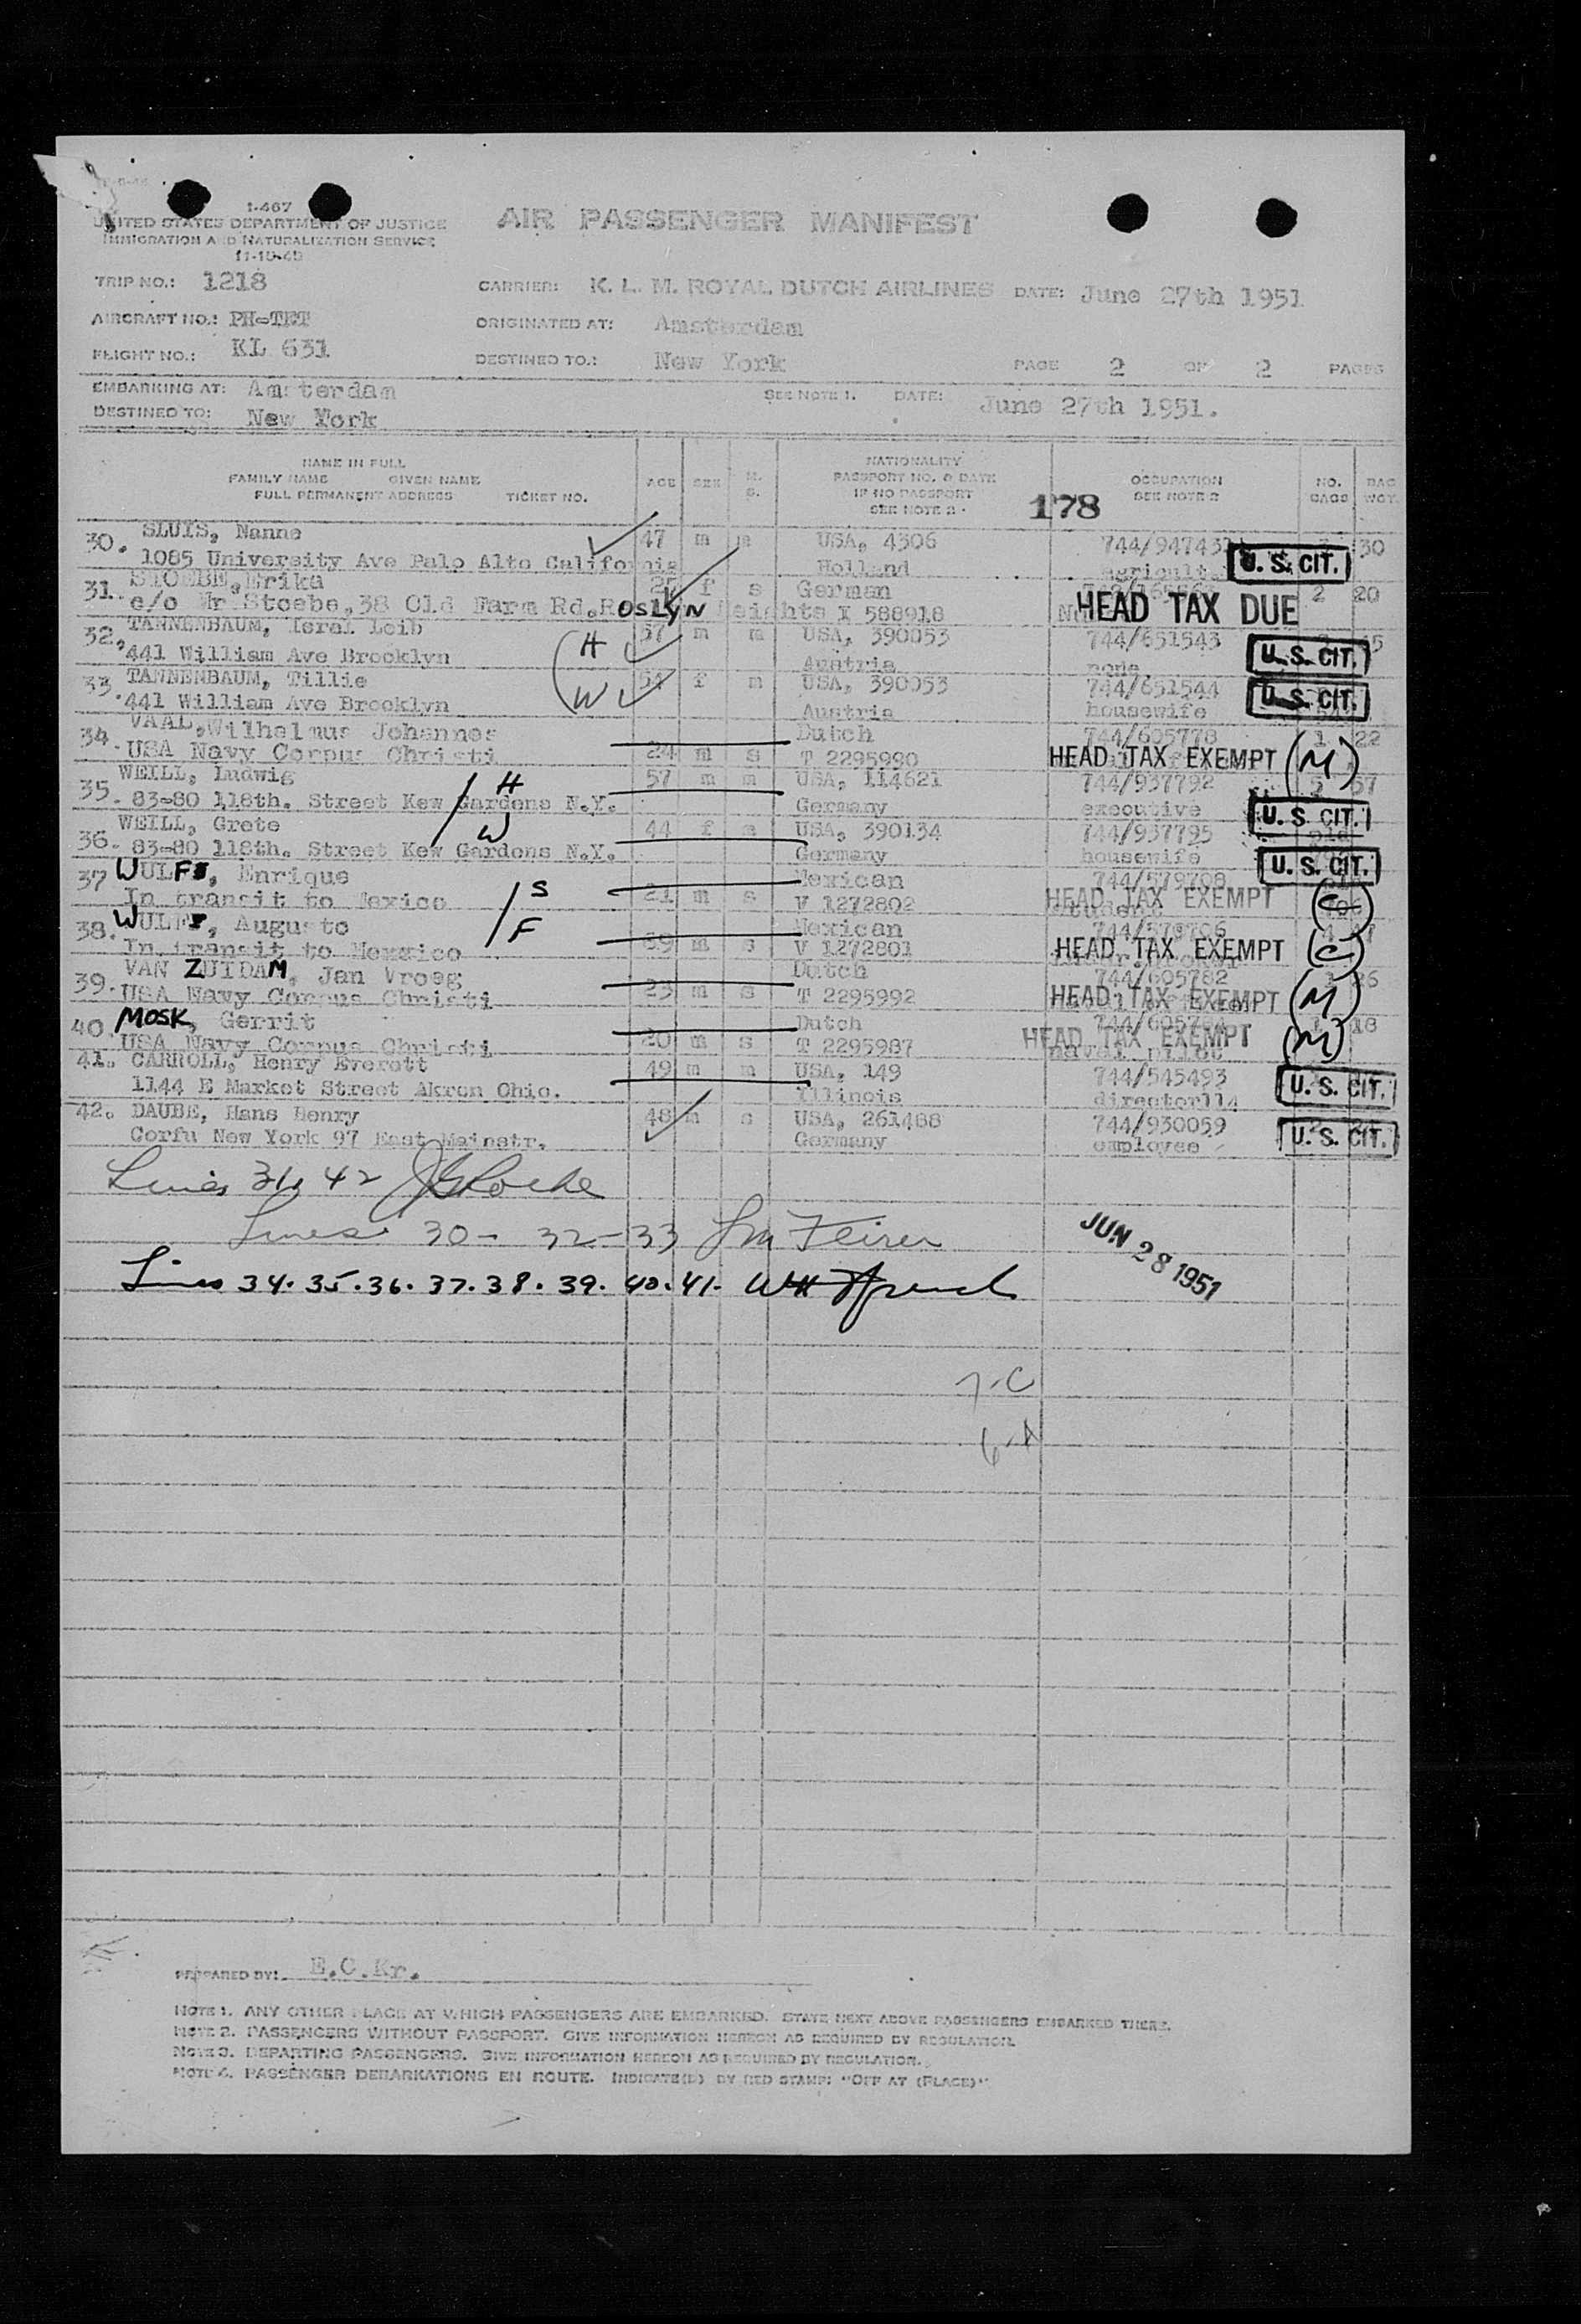 I-467
UNITED STATES DEPARTMENT OF JUSTICE
IMMIGRATION AND NATURALIZATION SERVICE
11-10-45
AIR PASSENGER MANIFEST
TRIP NO.: 1218
CARRIER: K. L. M. ROYAL DUTCH AIRLINES DATE: June 27th 1951
AIRCRAFT NO.: PH-TET
ORIGINATED AT: Amsterdam
FLIGHT NO.: KL 631
DESTINED TO.: New York PAGE 2 OF 2 PAGES
EMBARKING AT: Amsterdam
SEE NOTE 1. DATE: June 27th 1951.
DESTINED TO: New York
NAME IN FULL
FAMILY NAME GIVEN NAME
FULL PERMANENT ADDRESS TICKET NO.
AGE SEX M. S.
NATIONALITY
PASSPORT NO. & DATE
IF NO PASSPORT
SEE NOTE 2
OCCUPATION
SEE NOTE 2
NO. BAGS
BAG WGT.
178
30. SLUIS, Nanne 47 m m USA, 4306 30
1085 University Ave Palo Alto California Holland U. S. CIT.
31. STOEBE, Erika 25 f s German 2 20
c/o Mr Stoebe, 38 Old Farm Rd. ROSLYN Heights X 588918 HEAD TAX DUE
32. TANNENBAUM, Isral Leib H 57 m m USA, 390053 744/651543
441 William Ave Brooklyn Austria none U. S. CIT.
33. TANNENBAUM, Tillie W 54 f m USA, 390053 744/651544
441 William Ave Brooklyn Austria housewife U. S. CIT.
34. VAAL, Wilhelmus Johannes Dutch 744/605778 1 22
USA Navy Corpus Christi 24 m s T 2295990 HEAD TAX EXEMPT (M)
35. WEILL, Ludwig H 57 m m USA, 114621 744/937792 57
83-80 118th. Street Kew Gardens N.Y. Germany executive U. S. CIT.
36. WEILL, Grete W 44 f m USA, 390134 744/937795
83-80 118th. Street Kew Gardens N.Y. Germany housewife U. S. CIT.
37 WULFF, Enrique S Mexican 744/579708
In transit to Mexico 21 m s V 1272802 student HEAD TAX EXEMPT (C)
38. WULFF, Augusto F Mexican
In transit to Mexico 59 m s V 1272801 HEAD TAX EXEMPT (C)
39. VAN ZUIDAM, Jan Vroeg Dutch 744/605782 26
USA Navy Corpus Christi 23 m s T 2295992 HEAD TAX EXEMPT (M)
40. MOSK, Gerrit Dutch 18
USA Navy Corpus Christi 20 m s T 2295987 naval pilot HEAD TAX EXEMPT (M)
41. CARROLL, Henry Everett 49 m m USA, 149 744/545493
1144 E Market Street Akron Ohio. Illinois director U. S. CIT.
42. DAUBE, Hans Henry 48 m s USA, 261488 744/930059
Corfu New York 97 East Mainstr. Germany employee U. S. CIT.
Lines 31, 42
Lines 30- 32-33
JUN 28 1951
Lines 34. 35. 36. 37. 38. 39. 40. 41.
7-C
6-A
PREPARED BY: E.C.Kr.
NOTE 1. ANY OTHER PLACE AT WHICH PASSENGERS ARE EMBARKED. STATE NEXT ABOVE PASSENGERS EMBARKED THERE.
NOTE 2. PASSENGERS WITHOUT PASSPORT. GIVE INFORMATION HEREON AS REQUIRED BY REGULATION.
NOTE 3. DEPARTING PASSENGERS. GIVE INFORMATION HEREON AS REQUIRED BY REGULATION.
NOTE 4. PASSENGER DEBARKATIONS EN ROUTE. INDICATE(D) BY RED STAMP: "OFF AT (PLACE)"